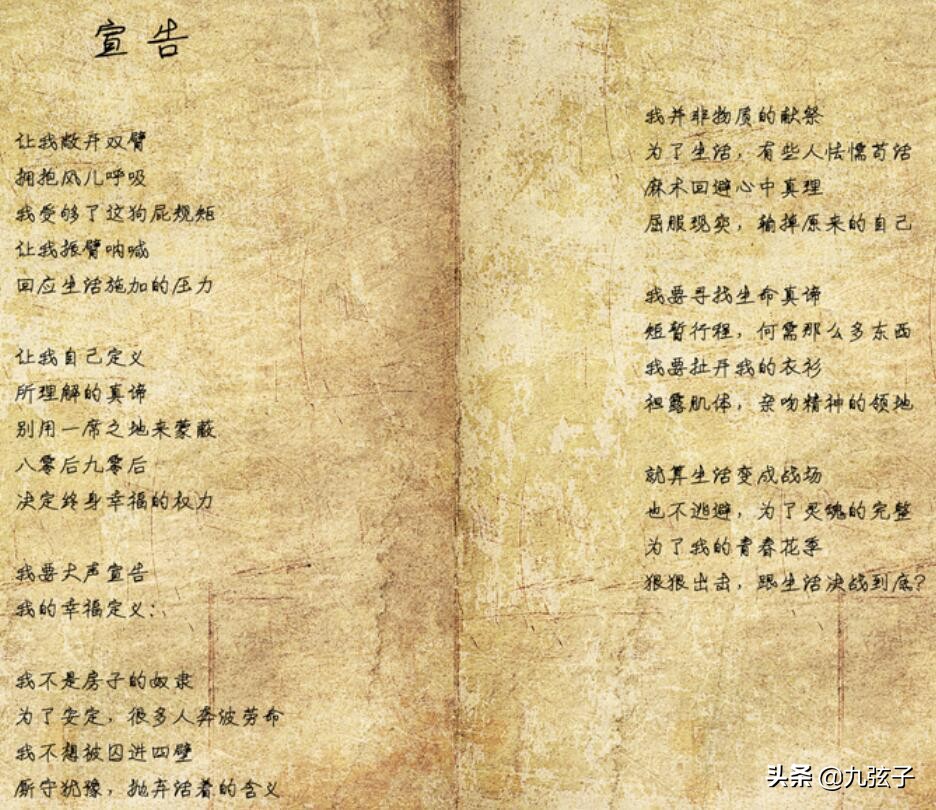 宣告
让我敞开双臂
拥抱风儿呼吸
我受够了这狗屁规矩
让我振臂呐喊
回应生活施加的压力
让我自己定义
所理解的真谛
别用一席之地来蒙蔽
八零后九零后
决定终身幸福的权力
我要大声宣告
我的幸福定义:
我不是房子的奴隶
为了安定，很多人奔波劳命
我不想被囚进四壁
厮守犹豫，抛弃活着的含义
我并非物质的献祭
为了生活，有些人怯懦苟活
麻木回避心中真理
屈服现实，输掉原来的自己
我要寻找生命真谛
短暂行程，何需那么多东西
我要扯开我的衣衫
袒露肌体，亲吻精神的领地
就算生活变成战场
也不逃避，为了灵魂的完整
为了我的青春花季
狠狠出击，跟生活决战到底?
头条 @九弦子